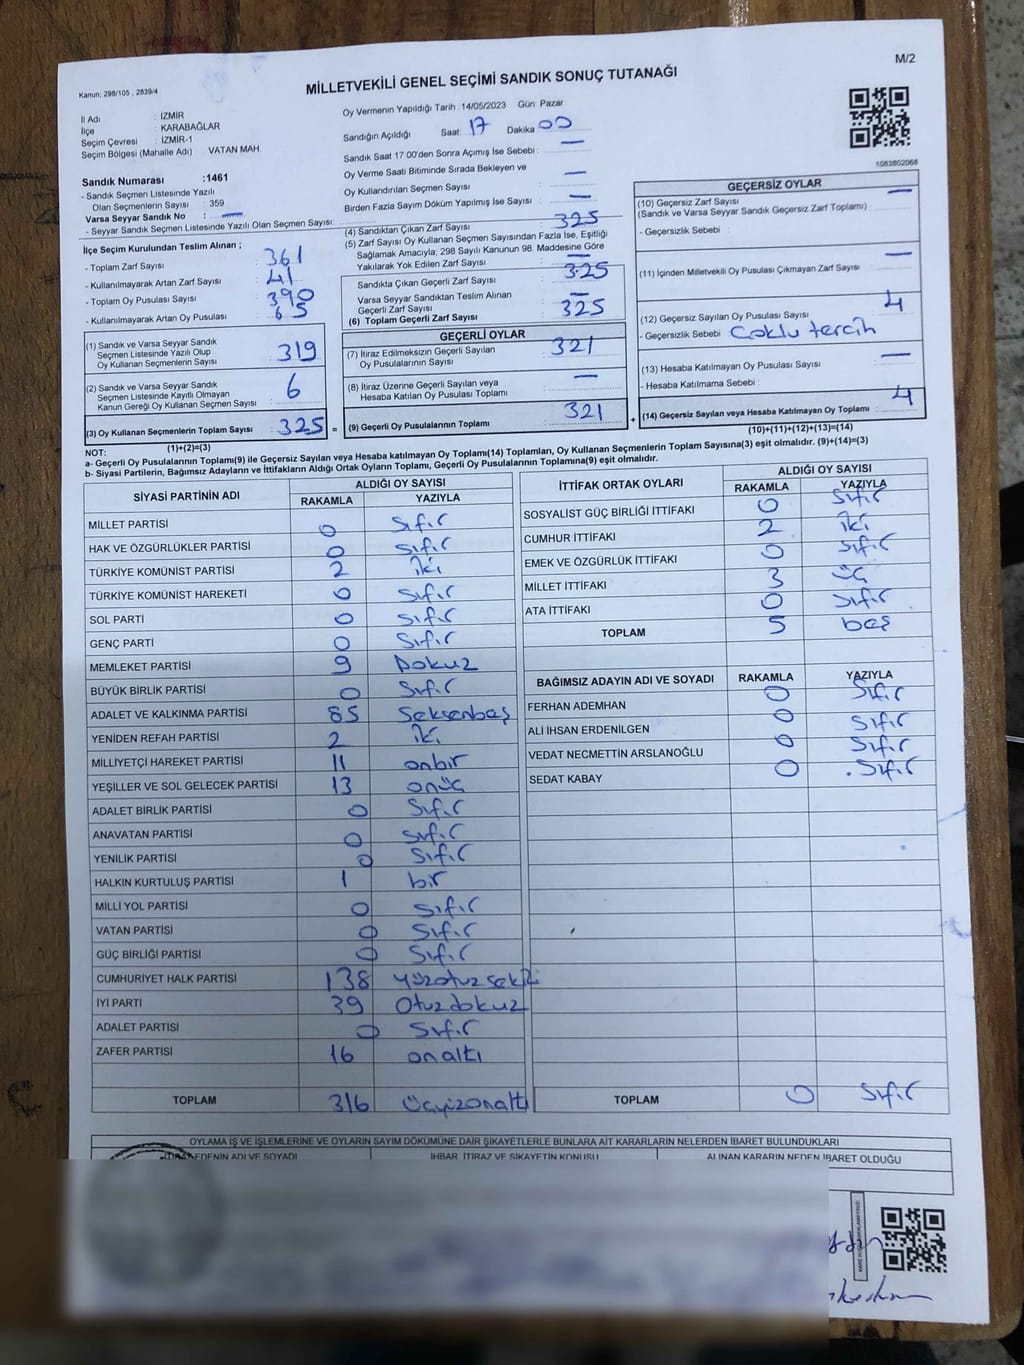 M/2
Kanun: 298/105 , 2839/4
MİLLETVEKİLİ GENEL SEÇİMİ SANDIK SONUÇ TUTANAĞI
İl Adı : İZMİR
İlçe : KARABAĞLAR
Seçim Çevresi : İZMİR-1
Seçim Bölgesi (Mahalle Adı) VATAN MAH.
Sandık Numarası :1461
- Sandık Seçmen Listesinde Yazılı
Olan Seçmenlerin Sayısı : 359
Varsa Seyyar Sandık No : —
- Seyyar Sandık Seçmen Listesinde Yazılı Olan Seçmen Sayısı:
İlçe Seçim Kurulundan Teslim Alınan ;
- Toplam Zarf Sayısı : 361
- Kullanılmayarak Artan Zarf Sayısı : 41
- Toplam Oy Pusulası Sayısı : 390
- Kullanılmayarak Artan Oy Pusulası : 65
(1) Sandık ve Varsa Seyyar Sandık
Seçmen Listesinde Yazılı Olup
Oy Kullanan Seçmenlerin Sayısı : 319
(2) Sandık ve Varsa Seyyar Sandık
Seçmen Listesinde Kayıtlı Olmayan
Kanun Gereği Oy Kullanan Seçmen Sayısı : 6
(3) Oy Kullanan Seçmenlerin Toplam Sayısı : 325
(1)+(2)=(3)
Oy Vermenin Yapıldığı Tarih :14/05/2023 Gün: Pazar
Sandığın Açıldığı Saat: 17 Dakika 00
Sandık Saat 17 00'den Sonra Açımış İse Sebebi : —
Oy Verme Saati Bitiminde Sırada Bekleyen ve
Oy Kullandırılan Seçmen Sayısı : —
Birden Fazla Sayım Döküm Yapılmış İse Sayısı : —
(4) Sandıktan Çıkan Zarf Sayısı : 325
(5) Zarf Sayısı Oy Kullanan Seçmen Sayısından Fazla İse, Eşitliği
Sağlamak Amacıyla, 298 Sayılı Kanunun 98. Maddesine Göre
Yakılarak Yok Edilen Zarf Sayısı : —
Sandıkta Çıkan Geçerli Zarf Sayısı : 325
Varsa Seyyar Sandıktan Teslim Alınan
Geçerli Zarf Sayısı : —
(6) Toplam Geçerli Zarf Sayısı : 325
GEÇERLİ OYLAR
(7) İtiraz Edilmeksizin Geçerli Sayılan
Oy Pusulalarının Sayısı : 321
(8) İtiraz Üzerine Geçerli Sayılan veya
Hesaba Katılan Oy Pusulası Toplamı : —
= (9) Geçerli Oy Pusulalarının Toplamı : 321
1083802066
GEÇERSİZ OYLAR
(10) Geçersiz Zarf Sayısı : —
(Sandık ve Varsa Seyyar Sandık Geçersiz Zarf Toplamı)
- Geçersizlik Sebebi :
(11) İçinden Milletvekili Oy Pusulası Çıkmayan Zarf Sayısı : —
(12) Geçersiz Sayılan Oy Pusulası Sayısı : 4
- Geçersizlik Sebebi Çoklu tercih
(13) Hesaba Katılmayan Oy Pusulası Sayısı : —
- Hesaba Katılmama Sebebi :
+ (14) Geçersiz Sayılan veya Hesaba Katılmayan Oy Toplamı : 4
(10)+(11)+(12)+(13)=(14)
NOT:
a- Geçerli Oy Pusulalarının Toplamı(9) ile Geçersiz Sayılan veya Hesaba katılmayan Oy Toplamı(14) Toplamları, Oy Kullanan Seçmenlerin Toplam Sayısına(3) eşit olmalıdır. (9)+(14)=(3)
b- Siyasi Partilerin, Bağımsız Adayların ve İttifakların Aldığı Ortak Oyların Toplamı, Geçerli Oy Pusulalarının Toplamına(9) eşit olmalıdır.
SİYASİ PARTİNİN ADI ALDIĞI OY SAYISI
RAKAMLA YAZIYLA
MİLLET PARTİSİ 0 Sıfır
HAK VE ÖZGÜRLÜKLER PARTİSİ 0 Sıfır
TÜRKİYE KOMÜNİST PARTİSİ 2 iki
TÜRKİYE KOMÜNİST HAREKETİ 0 Sıfır
SOL PARTİ 0 Sıfır
GENÇ PARTİ 0 Sıfır
MEMLEKET PARTİSİ 9 Dokuz
BÜYÜK BİRLİK PARTİSİ 0 Sıfır
ADALET VE KALKINMA PARTİSİ 85 Seksenbeş
YENİDEN REFAH PARTİSİ 2 iki
MİLLİYETÇİ HAREKET PARTİSİ 11 onbir
YEŞİLLER VE SOL GELECEK PARTİSİ 13 onüç
ADALET BİRLİK PARTİSİ 0 Sıfır
ANAVATAN PARTİSİ 0 Sıfır
YENİLİK PARTİSİ 0 Sıfır
HALKIN KURTULUŞ PARTİSİ 1 bir
MİLLİ YOL PARTİSİ 0 Sıfır
VATAN PARTİSİ 0 Sıfır
GÜÇ BİRLİĞİ PARTİSİ 0 Sıfır
CUMHURİYET HALK PARTİSİ 138 yüzotuzsekiz
İYİ PARTİ 39 Otuzdokuz
ADALET PARTİSİ 0 Sıfır
ZAFER PARTİSİ 16 onaltı
TOPLAM 316 üçyüzonaltı
İTTİFAK ORTAK OYLARI ALDIĞI OY SAYISI
RAKAMLA YAZIYLA
SOSYALİST GÜÇ BİRLİĞİ İTTİFAKI 0 Sıfır
CUMHUR İTTİFAKI 2 iki
EMEK VE ÖZGÜRLÜK İTTİFAKI 0 Sıfır
MİLLET İTTİFAKI 3 üç
ATA İTTİFAKI 0 Sıfır
TOPLAM 5 beş
BAĞIMSIZ ADAYIN ADI VE SOYADI RAKAMLA YAZIYLA
FERHAN ADEMHAN 0 Sıfır
ALİ İHSAN ERDENİLGEN 0 Sıfır
VEDAT NECMETTİN ARSLANOĞLU 0 Sıfır
SEDAT KABAY 0 Sıfır
TOPLAM 0 Sıfır
OYLAMA İŞ VE İŞLEMLERİNE VE OYLARIN SAYIM DÖKÜMÜNE DAİR ŞİKAYETLERLE BUNLARA AİT KARARLARIN NELERDEN İBARET BULUNDUKLARI
EDENİN ADI VE SOYADI İHBAR, İTİRAZ VE ŞİKAYETİN KONUSU ALINAN KARARIN NEDEN İBARET OLDUĞU